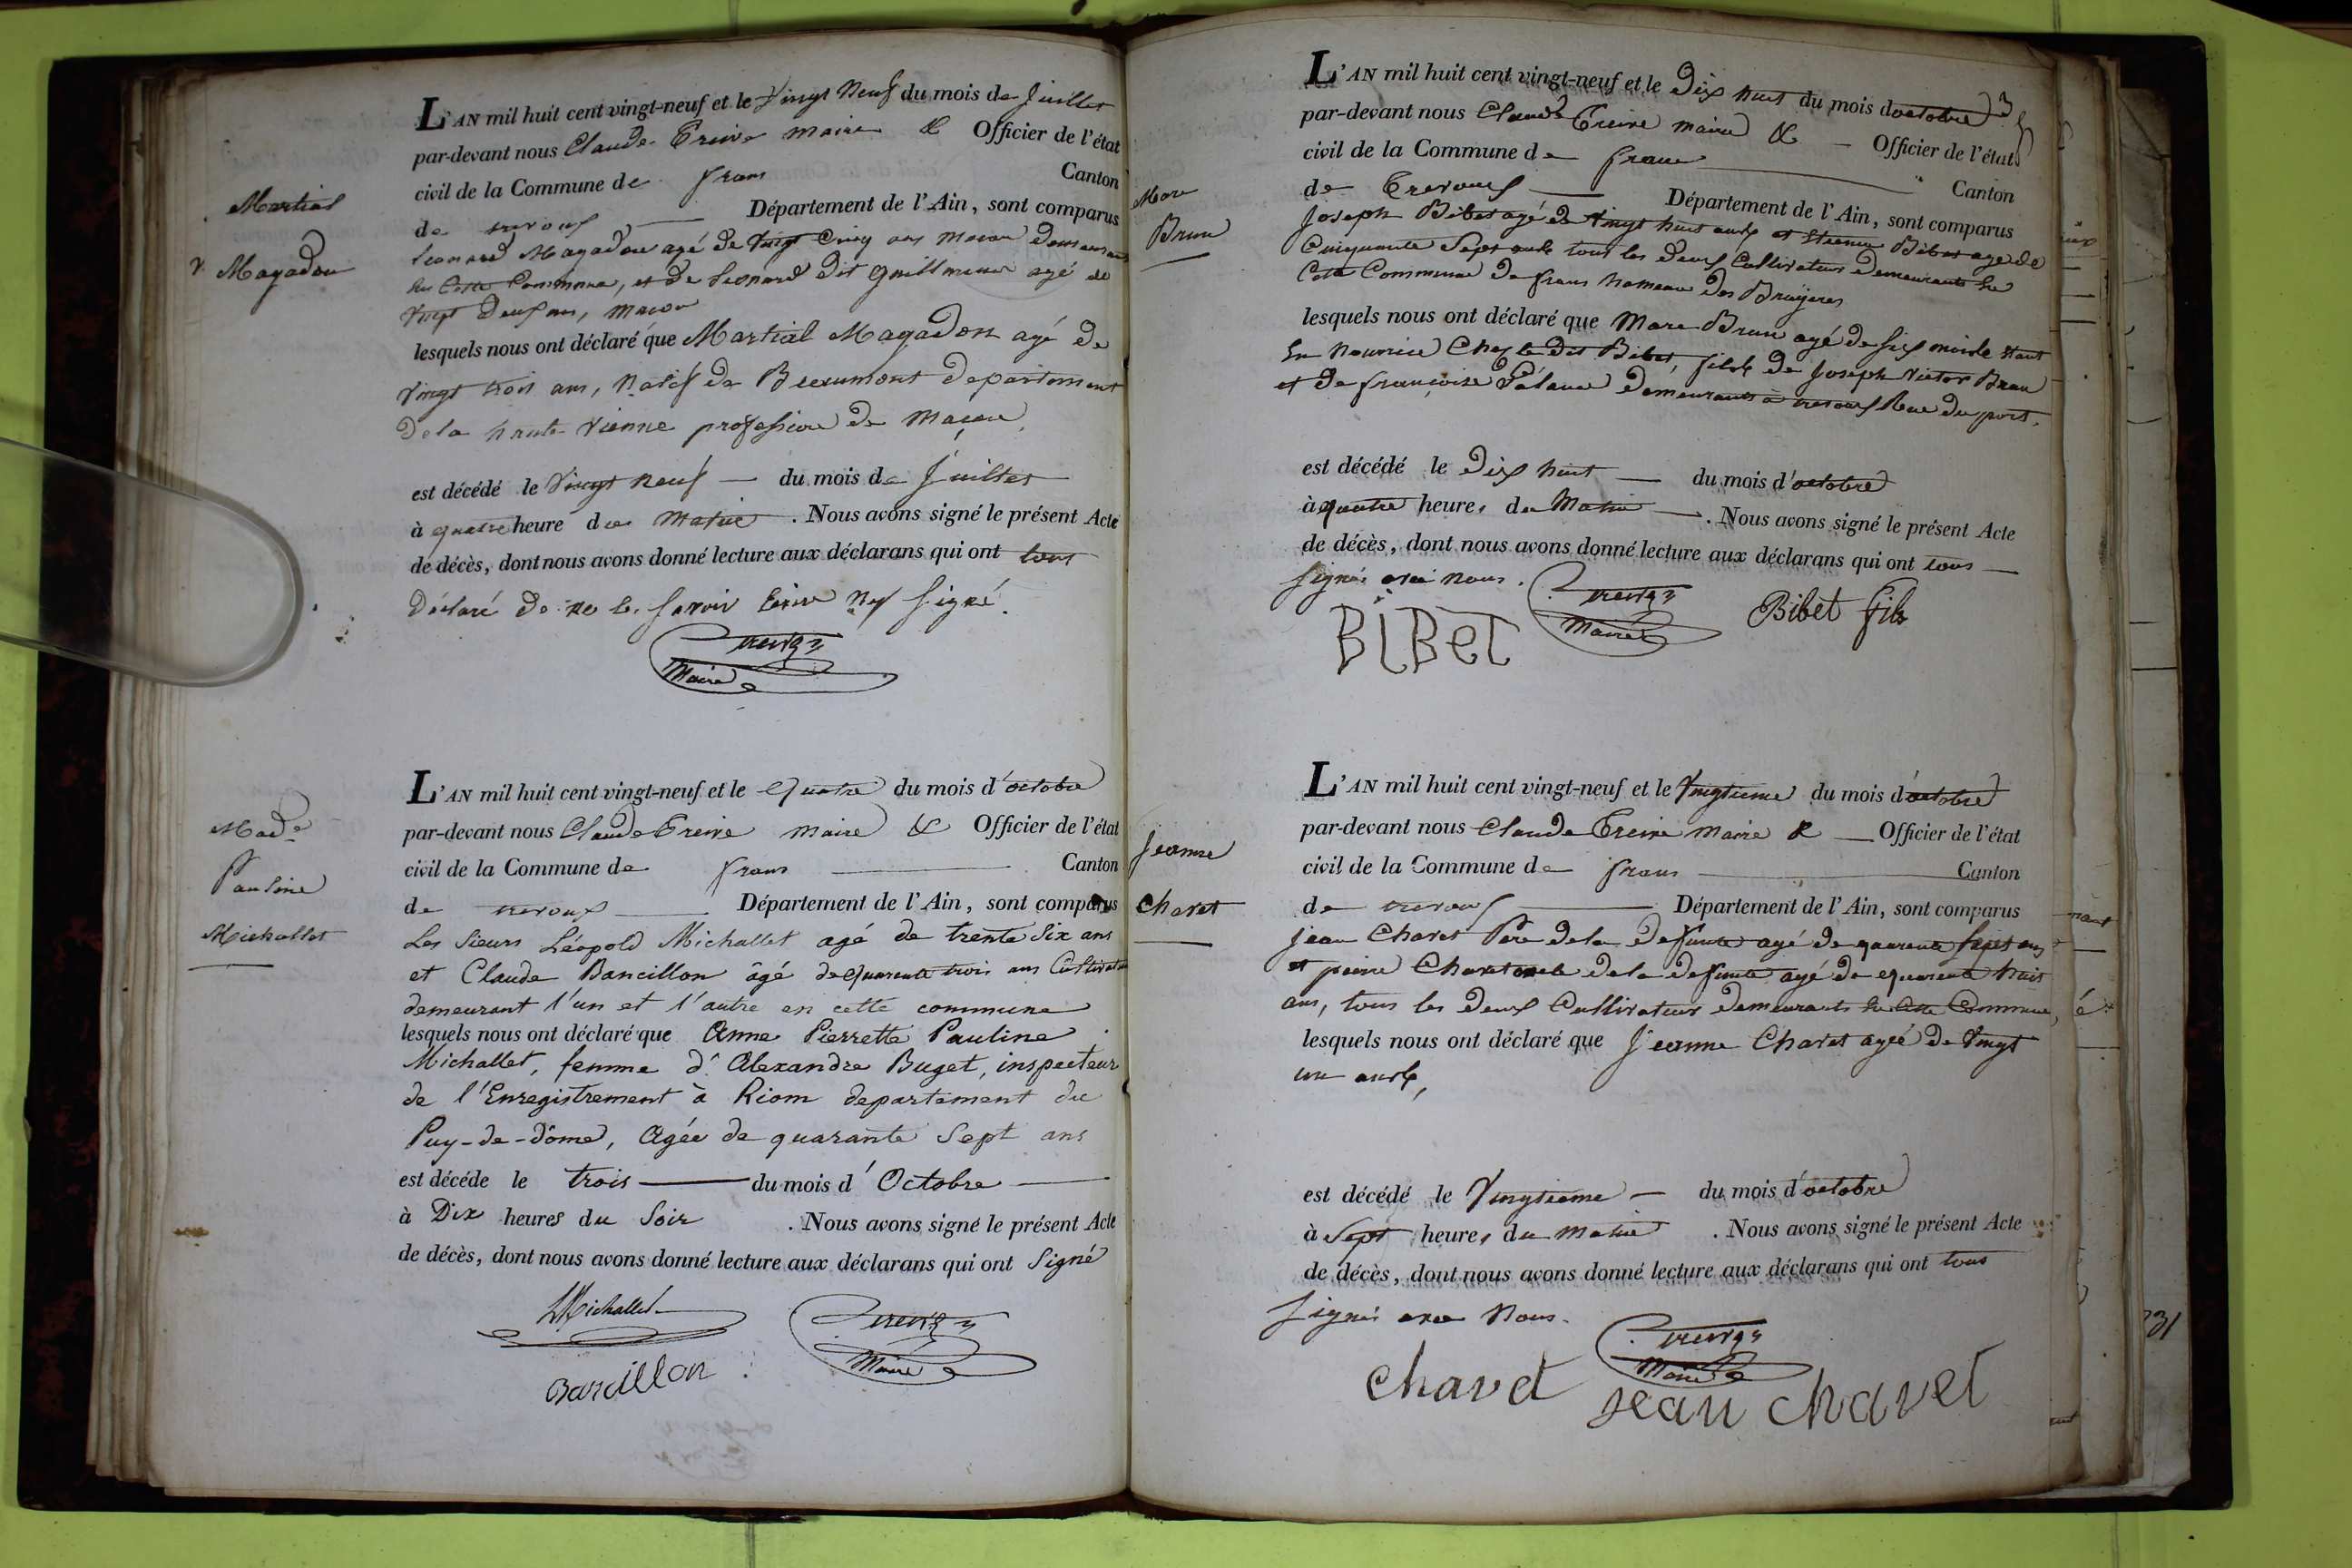 Martial
Magadou
L'AN mil huit cent vingt-neuf et le Vingt Neuf du mois de Juillet
par-devant nous Claude Treive maire & Officier de l'état
civil de la Commune de frans Canton
de trevoux Département de l'Ain, sont comparus
Leonard Magadou agé de Vingt Cinq ans macon demeurant
en Cette Commune, et de Leonard dit Guillmenu agé de
Vingt deux ans, macon
lesquels nous ont déclaré que Martial Magadon agé de
Vingt trois ans, natif de Beaumont departement
de la haute Vienne profession de Maçon,
est décédé le Vingt neuf du mois de Juillet
à quatre heure du Matin. Nous avons signé le présent Acte
de décès, dont nous avons donné lecture aux déclarans qui ont tous
déclaré de ne le Savoir Ecrire ny Signé.
Treive
Maire
Made
Pauline
Michallet
L'AN mil huit cent vingt-neuf et le Quatre du mois d'octobre
par-devant nous Claude Treive maire & Officier de l'état
civil de la Commune de frans Canton
de trevoux Département de l'Ain, sont comparus
Les Sieurs Léopold Michallet agé de trente Six ans
et Claude Bancillon âgé de quarante trois ans Cultivateur
demeurant l'un et l'autre en cette commune
lesquels nous ont déclaré que Anne Pierrette Pauline
Michallet, femme d'Alexandre Buget, inspecteur
de l'Enregistrement à Riom departement du
Puy-de-dôme, Agée de quarante Sept ans
est décéde le trois du mois d'Octobre
à Dix heures du Soir. Nous avons signé le présent Acte
de décès, dont nous avons donné lecture aux déclarans qui ont Signé
LMichallet
Treive
Maire
Bancillon
Marc
Brun
L'AN mil huit cent vingt-neuf et le Dix huit du mois doctobre
par-devant nous Claude Treive maire & Officier de l'état
civil de la Commune de frans Canton
de Trevoux Département de l'Ain, sont comparus
Joseph Bibet agé de Vingt huit ans et Etienne Bibet age de
Cinquante Sept ans tous les deux Cultivateurs demeurants en
Cette Commune de frans hameau des Bruyeres
lesquels nous ont déclaré que Marc Brun agé de six mois étant
En Nourrice Chez le dit Bibet, fils de Joseph Victor Brun
et de françoise demeurants à trevoux Rue du port.
est décédé le Dix huit du mois d'octobre
à quatre heures du Matin. Nous avons signé le présent Acte
de décès, dont nous avons donné lecture aux déclarans qui ont tous
Signés avec nous.
Treive
Maire
BiBeT
Bibet fils
Jeanne
Chavet
L'AN mil huit cent vingt-neuf et le Vingtieme du mois d'octobre
par-devant nous Claude Treive Maire & Officier de l'état
civil de la Commune de frans Canton
de trevoux Département de l'Ain, sont comparus
Jean Chavet Pere de la defunte agé de quarente Sept ans
et peirre Chavet oncle de la defunte agé de quarente huit
ans, tous les deux Cultivateur demeurants en Cette Commune,
lesquels nous ont déclaré que Jeanne Chavet agée de Vingt
un ans,
est décédé le Vingtieme du mois d'octobre
à Sept heures du matin. Nous avons signé le présent Acte
de décès, dont nous avons donné lecture aux déclarans qui ont tous
Signés avec Nous.
Treive
Maire
Chavet
Jean Chavet